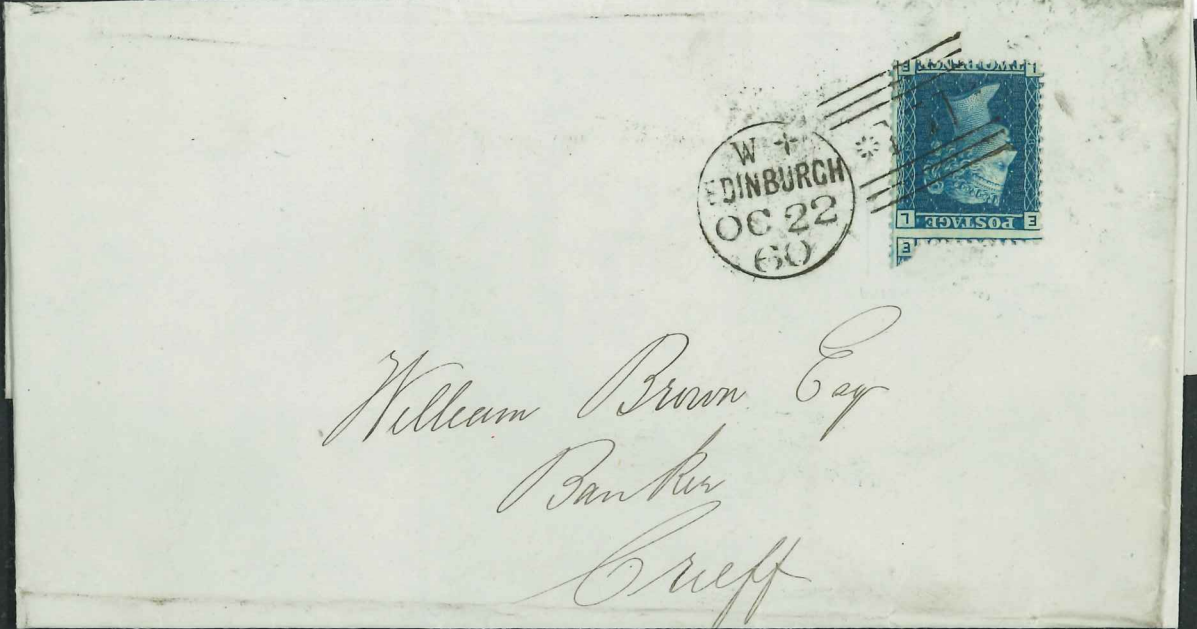 W +
EDINBURGH
OC 22
60
E L
POSTAGE
L E
E
William Brown Esq
Banker
Crieff